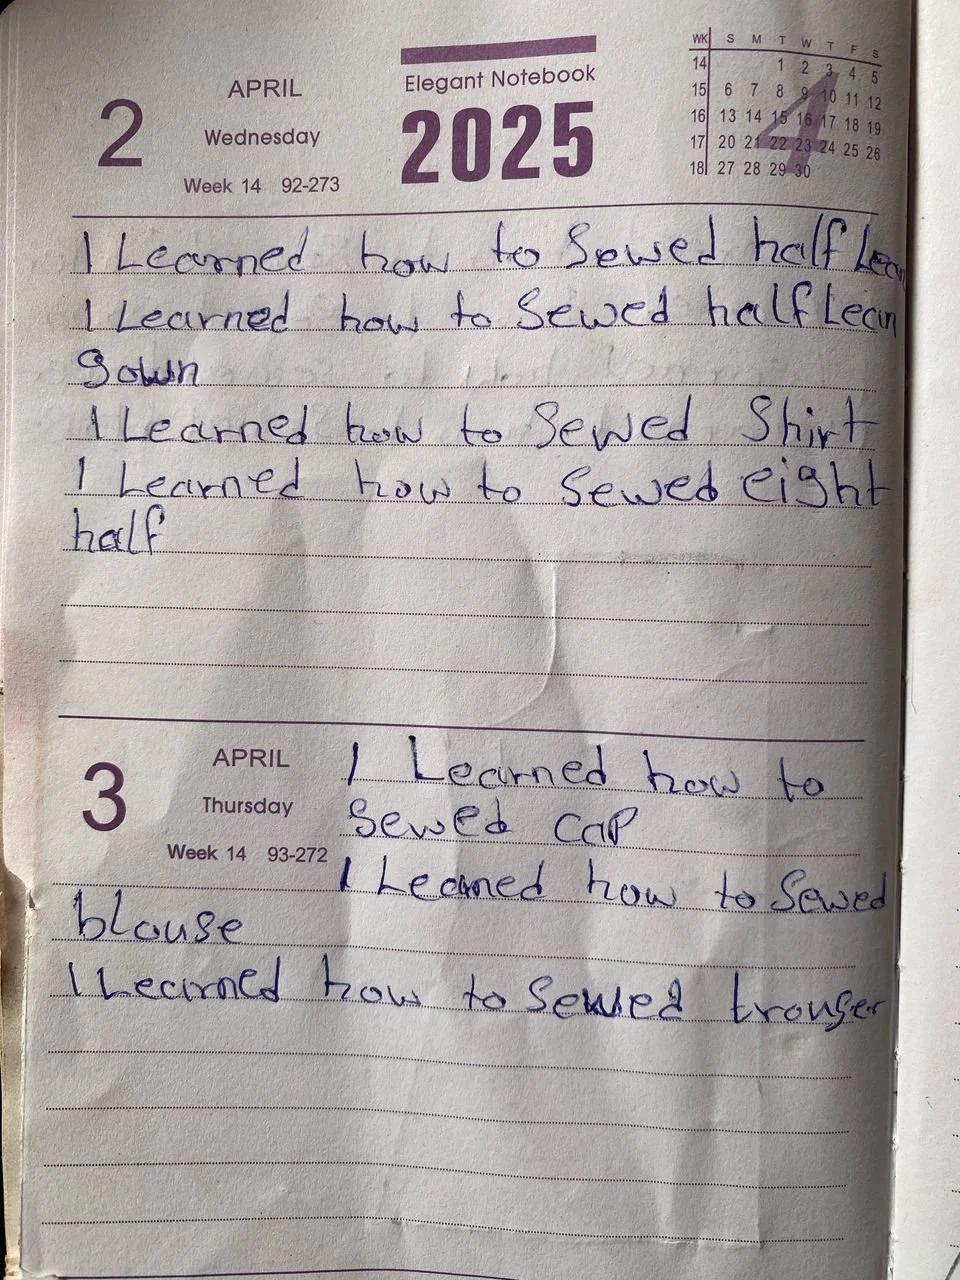 2
APRIL
Wednesday
Week 14 92-273
Elegant Notebook
2025
WK S M T W T F S
14 1 2 3 4 5
15 6 7 8 9 10 11 12
16 13 14 15 16 17 18 19
17 20 21 22 23 24 25 26
18 27 28 29 30
4
I Learned how to Sewed half Lean
I Learned how to Sewed half Lean
gown
I Learned how to Sewed Shirt
I Learned how to Sewed eight
half
3
APRIL
Thursday
Week 14 93-272
I Learned how to
Sewed cap
I Learned how to Sewed
blouse
I Learned how to Sewed trouser